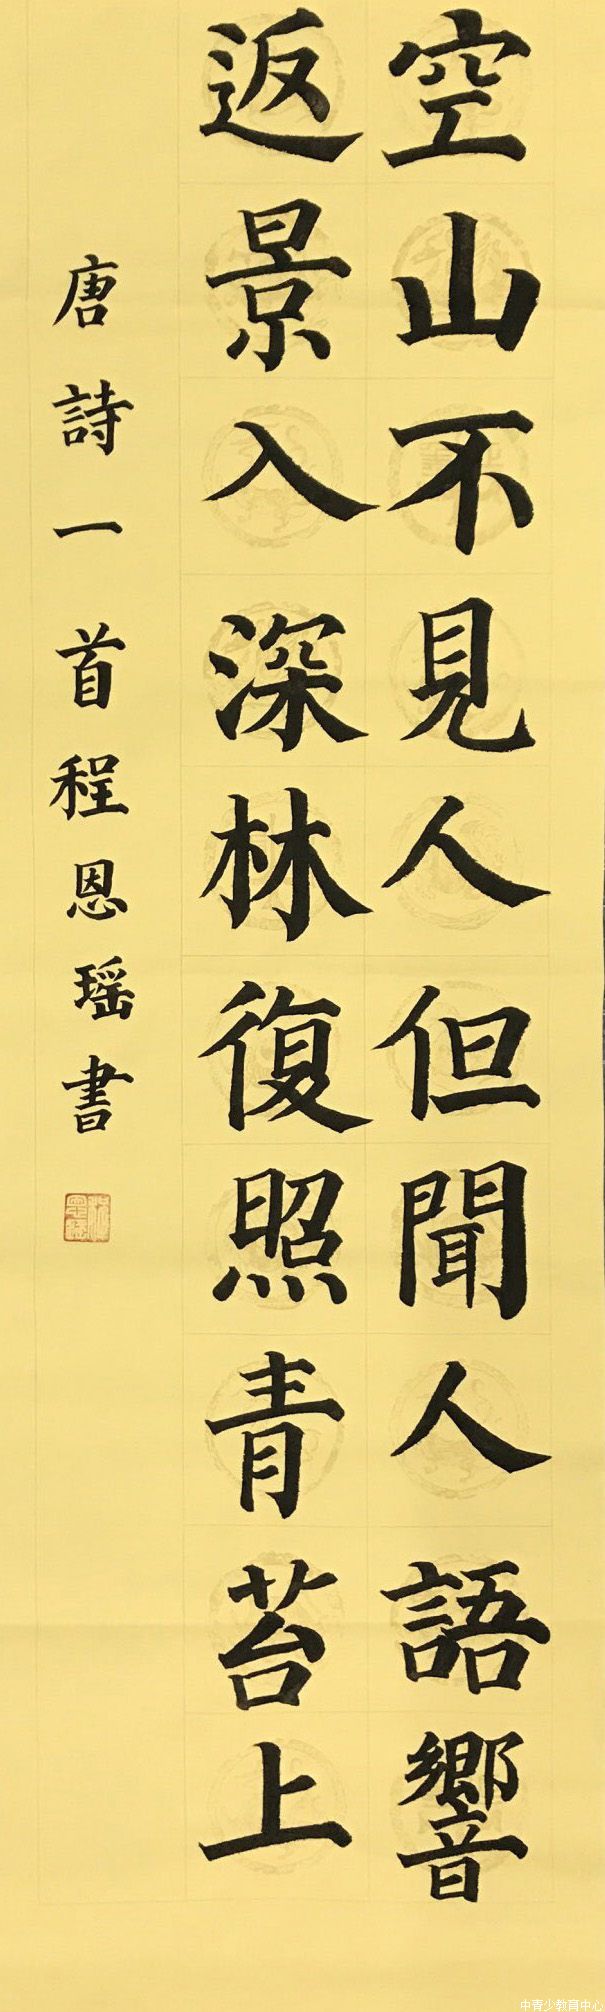 空山不見人但聞人語響
返景入深林復照青苔上
唐詩一首程恩瑶書
中青少教育中心